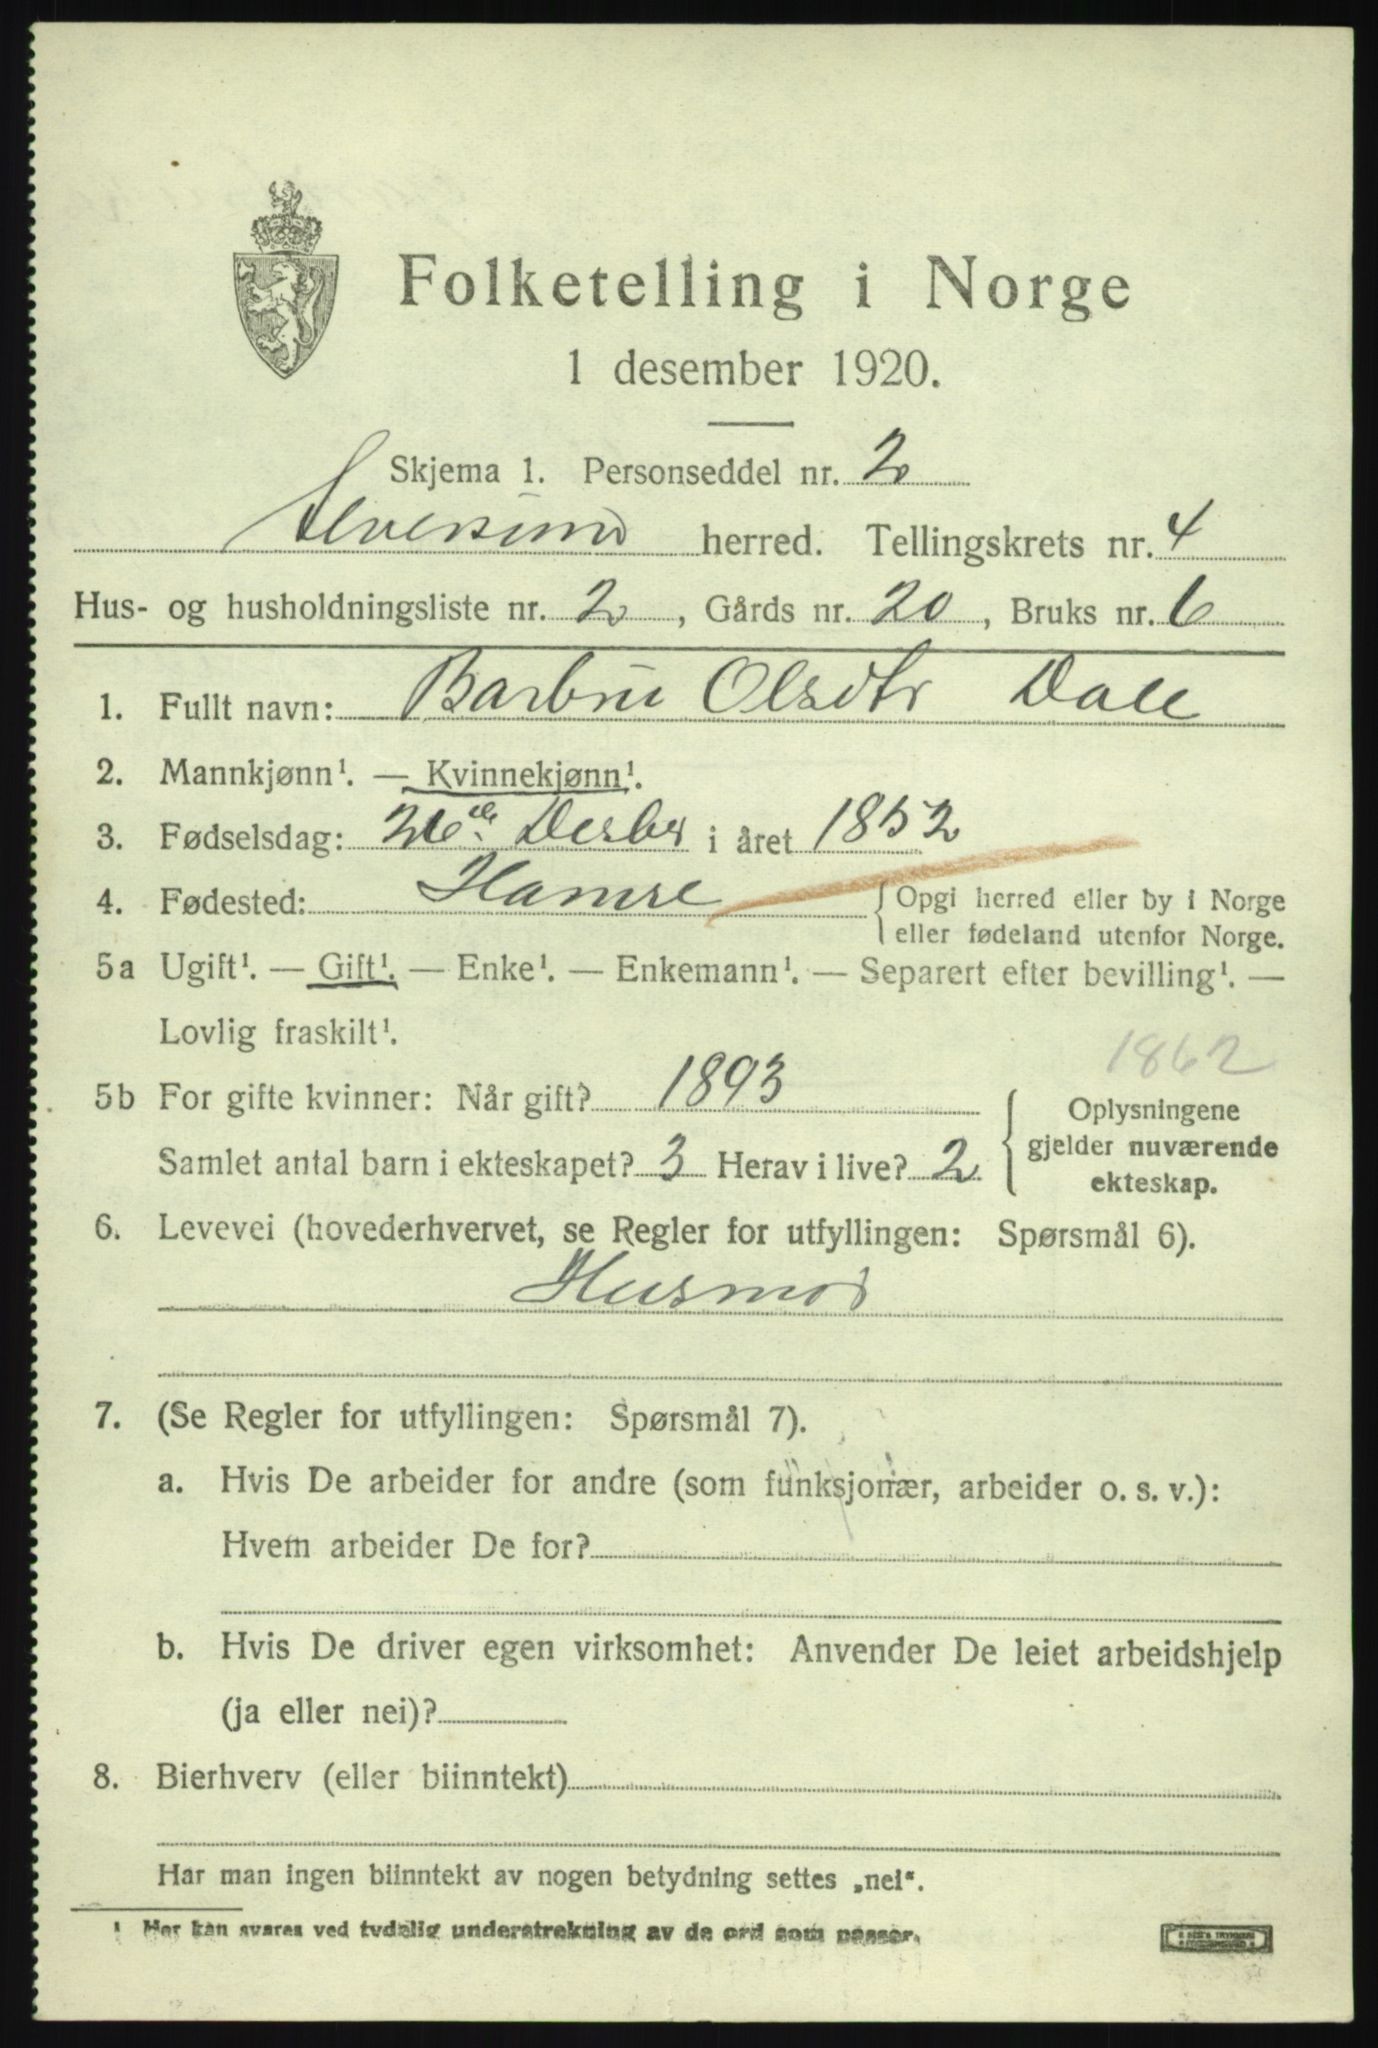 Folketelling i Norge
1 desember 1920.
Skjema 1. Personseddel nr. 2
Alversund herred. Tellingskrets nr. 4
Hus- og husholdningsliste nr. 2, Gårds nr. 20, Bruks nr. 6
1. Fullt navn: Barbru Olsdtr Dale
2. Mannkjønn¹. — Kvinnekjønn¹.
3. Fødselsdag: 26de Desbr i året 1852
4. Fødested: Hamre { Opgi herred eller by i Norge
eller fødeland utenfor Norge.
5a Ugift¹. — Gift¹. — Enke¹. — Enkemann¹. — Separert efter bevilling¹. —
Lovlig fraskilt¹.
1862
5b For gifte kvinner: Når gift? 1893
Samlet antal barn i ekteskapet? 3 Herav i live? 2
{ Oplysningene
gjelder nuværende
ekteskap.
6. Levevei (hovederhvervet, se Regler for utfyllingen: Spørsmål 6).
Husmor
7. (Se Regler for utfyllingen: Spørsmål 7).
a. Hvis De arbeider for andre (som funksjonær, arbeider o. s. v.):
Hvem arbeider De for?
b. Hvis De driver egen virksomhet: Anvender De leiet arbeidshjelp
(ja eller nei)?
8. Bierhverv (eller biinntekt)
Har man ingen biinntekt av nogen betydning settes „nei“.
¹ Her kan svares ved tydelig understrekning av de ord som passer.